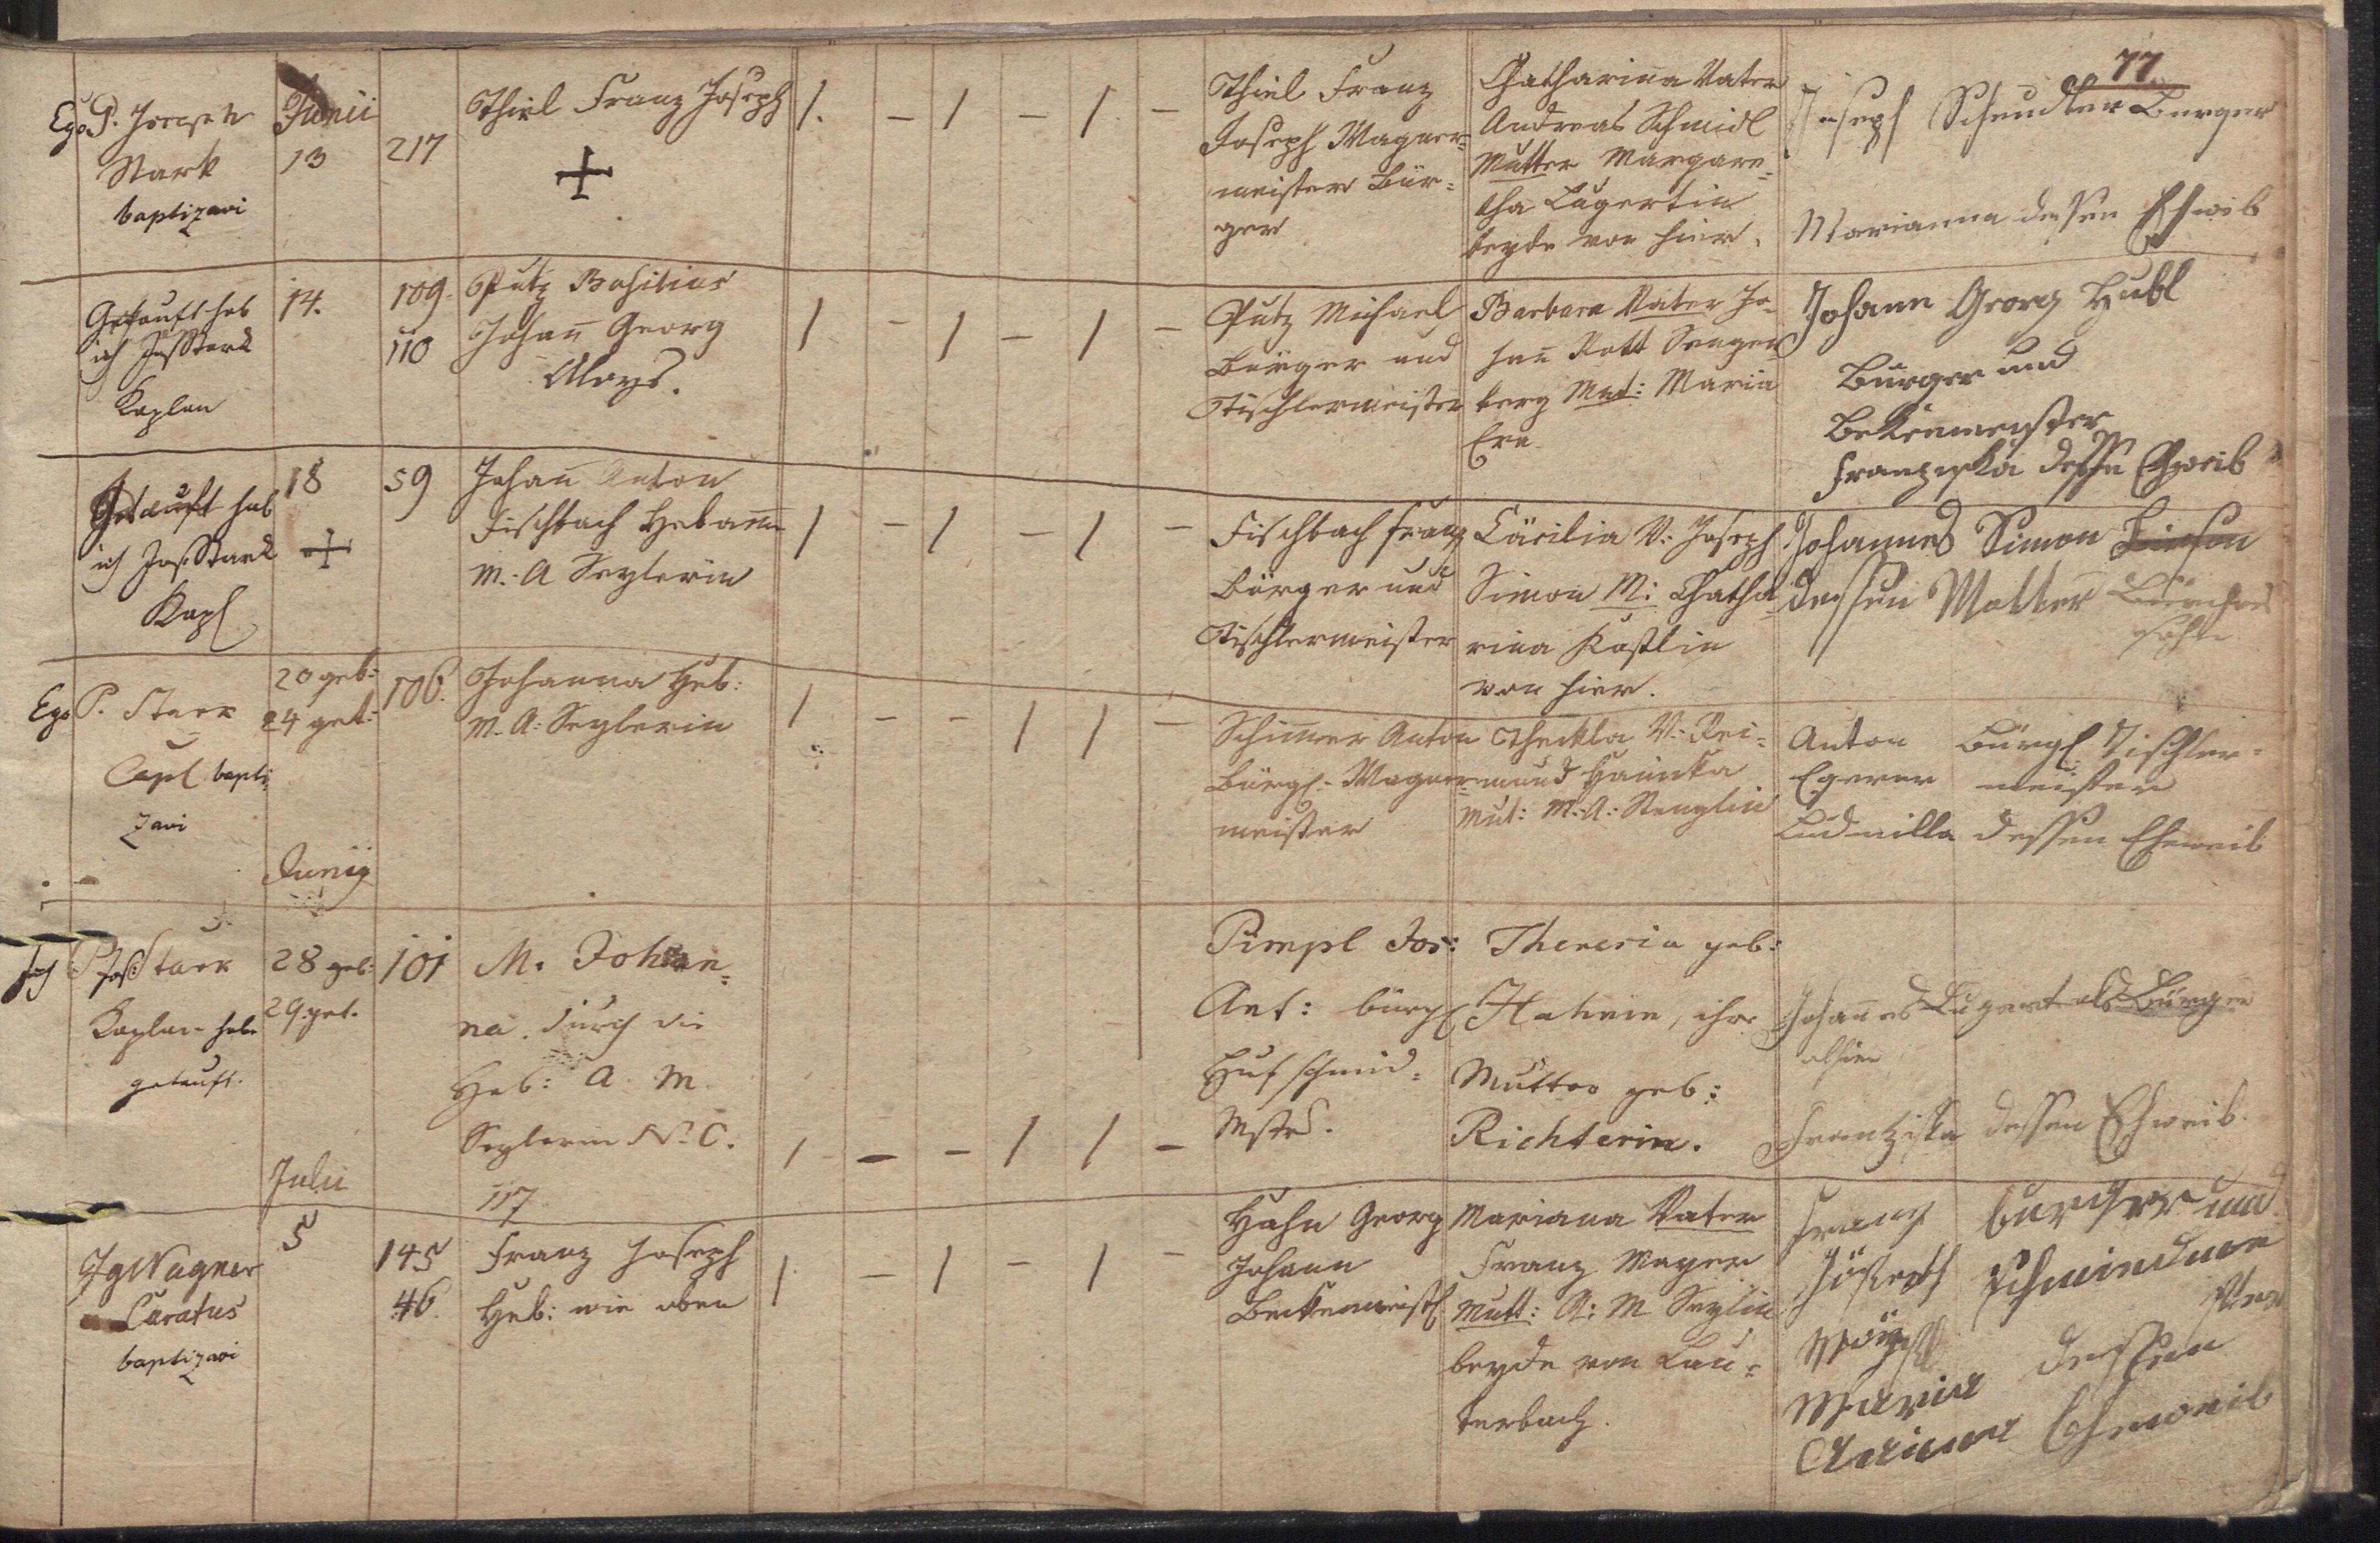 77
Ego P. Joseph
Stark
baptizavi
Junii
13
217
Thiel Franz Joseph
1. – 1 – 1 –
Thiel Franz
Joseph Wagner=
meister Bür=
ger
Chatharina Vater
Andreas Schmidl
Mutter Margare=
tha Lugertin
beyde von hier.
Joseph Schendler Burger
Marianna dessen Ehwib
Getauft hab
ich Jos Stark
Kaplan
14.
109.
110
Putz Basilius
Johann Georg
Aloys.
1 – 1 – 1 –
Putz Michael
Bürger und
Tischlermeister
Barbara Vater Jo=
hann Rott Senger
berg Mut: Maria
Eva
Johann Georg Hubl
Burger und
Bekenmeister
Franziska desse Ehweib
Getauft hab
ich Jos Stark
Kapl
18
59
Johann Anton
Fischbach Hebamme
M. A Seylerin
1 – 1 – 1 –
Fischbach Franz
Bürger und
Tischlermeister
Cäcilia V: Joseph
Simon M: Chatha
rina Kastlin
von hier.
Johannes Simon
dessen Motter
Ego P. Stark
Capl bapti
zavi
20 geb:
24 get:
106.
Johanna Heb:
M. A: Seylerin
1 – – 1 1 –
Schimmer Anton
bürgl. Wagner
meister
Theckla V: Rei=
mund Haniska
Mut: M: A: Stenglin
Anton bürgl Tischler=
Egerer meister
Ludmilla dessen Eheweib
Junij
Ich P Jos Stark
Kaplan habe
getauft.
28 geb:
29. get.
101
M. Johan=
na. durch die
Heb: A. M.
Seylerin N. C.
117
1 – – 1 1 –
Pimpl Jos:
Ant: bürgl
Hufschmid=
Mstr.
Theresia geb:
Hahnin, ihre
Mutter geb:
Richterin.
Johannes Lugert als Bürger
alhier
Frantziska dessen Ehweib.
Julii
5
Ig Wagner
Curatus
baptizavi
145
46.
Franz Joseph
Heb: wie oben
1. – 1 – 1 –
Hahn Georg
Johann
Beckenmeistr
Mariana Vater
Franz Mayer
Mutt: A: M Seylin
beyde von Lau=
terbach.
Franz burger und
Joseph
Maria dessen
Eheweib